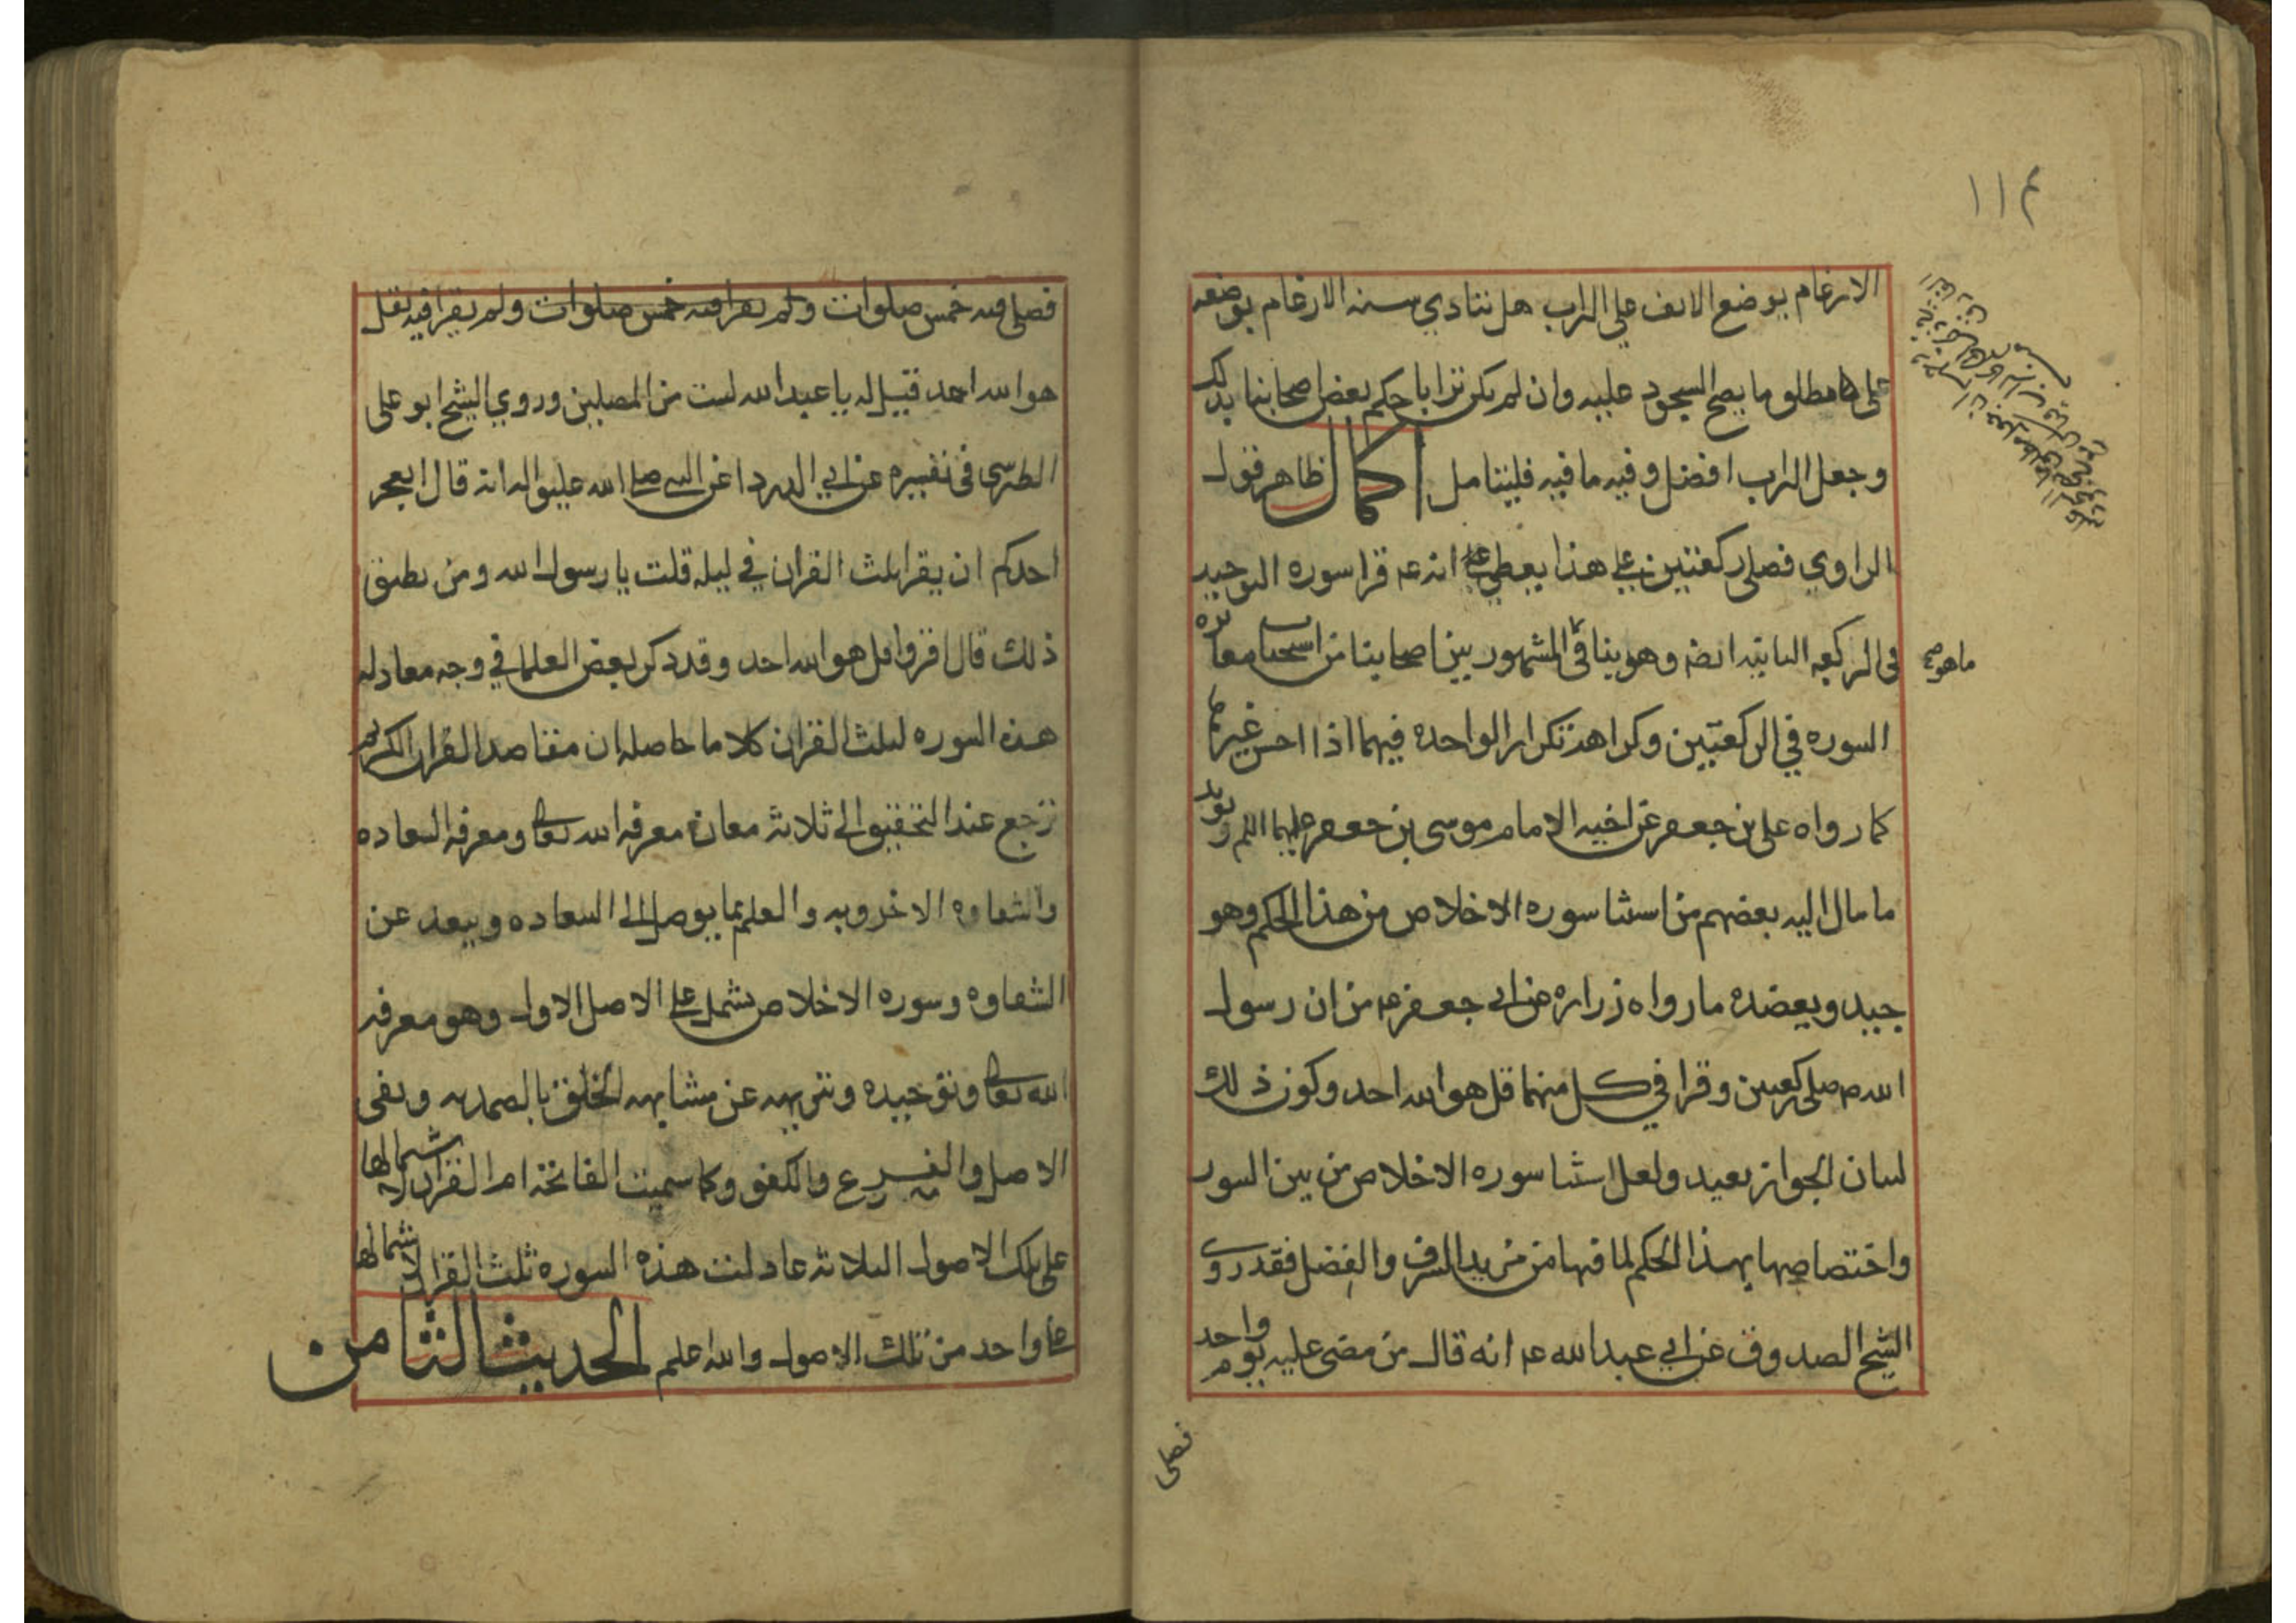 ١١٤
الارغام بوضع الانف على التراب هل تتادي سنه الارغام بوضعه
على مطلق ما يصح السجود عليه وان لم يكن ترابا حكم بعض اصحابنا بذلك
وجعل التراب افضل وفيه ما فيه فليتامل اكمال ظاهر قول
الراوي فصلى ركعتين على هذا يعطي انه عم قرا سوره التوحيد
فى الركعه الثانيه ايضا وهو ينافى المشهور بين اصحابنا من استحباب مغايره
ما هو
السوره في الركعتين وكراهة تكرار الواحده فيهما اذا احسن غيرها
كما رواه على بن جعفر عن اخيه الامام موسى بن جعفر عليهما السلم ويويد
ما مال اليه بعضهم من استثنا سوره الاخلاص من هذا الحكم وهو
جيد ويعضده ما رواه زراره عن ابى جعفر عم من ان رسول
الله ص صلى ركعتين وقرا في كل منهما قل هو الله احد وكون ذلك
لبيان الجواز بعيد ولعل استثنا سوره الاخلاص من بين السور
واختصاصها بهذا الحكم لما فيها من مزيد الشرف والفضل فقد روى
الشيخ الصدوق عن ابي عبدالله عم انه قال من مضى عليه يوم واحد
فصلى
فصلى فيه خمس صلوات ولم يقرا فيه خمس صلوات ولم يقرا فيه بقل
هو الله احد قيل له يا عبد الله لست من المصلين وروي الشيخ ابو على
الطبرسى فى تفسيره عن ابي الدردا عن النبى صلى الله عليه واله انه قال ايعجز
احدكم ان يقرا ثلث القران في ليله قلت يا رسول الله ومن يطيق
ذلك قال اقروا قل هو الله احد وقد ذكر بعض العلما في وجه معادله
هذه السوره لثلث القران كلاما حاصله ان مقاصد القران الكريم
ترجع عند التحقيق الى ثلاثة معان معرفه الله تعالى ومعرفه السعاده
والشقاوه الاخرويه والعلم بما يوصل الى السعاده ويبعد عن
الشقاوه وسوره الاخلاص تشمل على الاصل الاول وهو معرفه
الله تعالى وتوحيده وتنزيهه عن مشابهه الخلق بالصمديه ونفى
الاصل والفرع والكفو وكما سميت الفاتحة ام القران لاشتمالها
على تلك الاصول الثلاثة عادلت هذه السوره ثلث القران لاشتمالها
على واحد من تلك الاصول والله اعلم الحديث الثامن